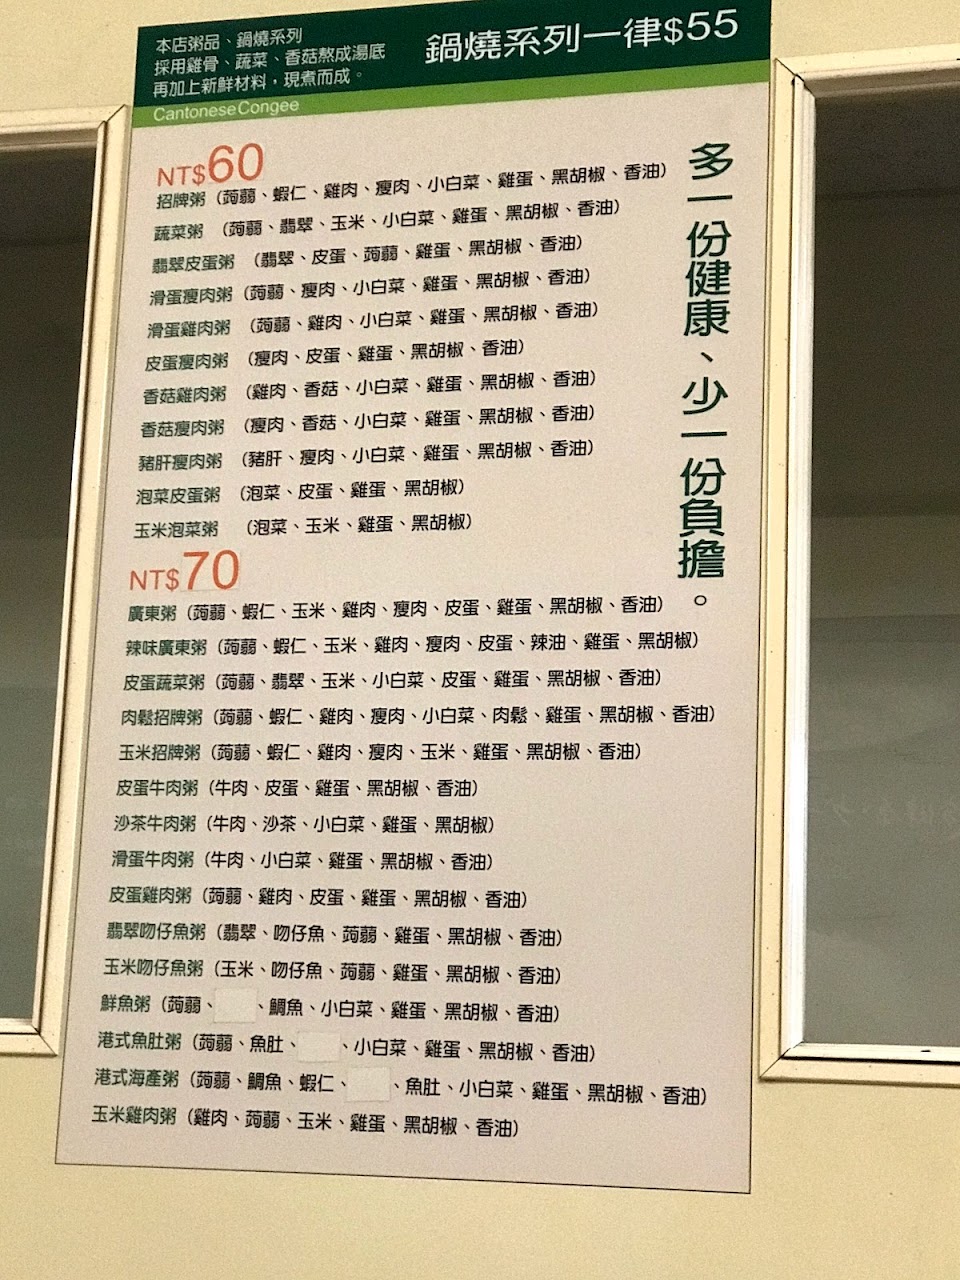 本店粥品、鍋燒系列
採用雞骨、蔬菜、香菇熬成湯底
再加上新鮮材料，現煮而成。
鍋燒系列一律$55
Cantonese Congee
NT$60
招牌粥（蒟蒻、蝦仁、雞肉、瘦肉、小白菜、雞蛋、黑胡椒、香油）
蔬菜粥（蒟蒻、翡翠、玉米、小白菜、雞蛋、黑胡椒、香油）
翡翠皮蛋粥（翡翠、皮蛋、蒟蒻、雞蛋、黑胡椒、香油）
滑蛋瘦肉粥（蒟蒻、瘦肉、小白菜、雞蛋、黑胡椒、香油）
滑蛋雞肉粥（蒟蒻、雞肉、小白菜、雞蛋、黑胡椒、香油）
皮蛋瘦肉粥（瘦肉、皮蛋、雞蛋、黑胡椒、香油）
香菇雞肉粥（雞肉、香菇、小白菜、雞蛋、黑胡椒、香油）
香菇瘦肉粥（瘦肉、香菇、小白菜、雞蛋、黑胡椒、香油）
豬肝瘦肉粥（豬肝、瘦肉、小白菜、雞蛋、黑胡椒、香油）
泡菜皮蛋粥（泡菜、皮蛋、雞蛋、黑胡椒）
玉米泡菜粥（泡菜、玉米、雞蛋、黑胡椒）
NT$70
廣東粥（蒟蒻、蝦仁、玉米、雞肉、瘦肉、皮蛋、雞蛋、黑胡椒、香油）
辣味廣東粥（蒟蒻、蝦仁、玉米、雞肉、瘦肉、皮蛋、辣油、雞蛋、黑胡椒）
皮蛋蔬菜粥（蒟蒻、翡翠、玉米、小白菜、皮蛋、雞蛋、黑胡椒、香油）
肉鬆招牌粥（蒟蒻、蝦仁、雞肉、瘦肉、小白菜、肉鬆、雞蛋、黑胡椒、香油）
玉米招牌粥（蒟蒻、蝦仁、雞肉、瘦肉、玉米、雞蛋、黑胡椒、香油）
皮蛋牛肉粥（牛肉、皮蛋、雞蛋、黑胡椒、香油）
沙茶牛肉粥（牛肉、沙茶、小白菜、雞蛋、黑胡椒）
滑蛋牛肉粥（牛肉、小白菜、雞蛋、黑胡椒、香油）
皮蛋雞肉粥（蒟蒻、雞肉、皮蛋、雞蛋、黑胡椒、香油）
翡翠吻仔魚粥（翡翠、吻仔魚、蒟蒻、雞蛋、黑胡椒、香油）
玉米吻仔魚粥（玉米、吻仔魚、蒟蒻、雞蛋、黑胡椒、香油）
鮮魚粥（蒟蒻、、鯛魚、小白菜、雞蛋、黑胡椒、香油）
港式魚肚粥（蒟蒻、魚肚、、小白菜、雞蛋、黑胡椒、香油）
港式海產粥（蒟蒻、鯛魚、蝦仁、、魚肚、小白菜、雞蛋、黑胡椒、香油）
玉米雞肉粥（雞肉、蒟蒻、玉米、雞蛋、黑胡椒、香油）
多一份健康、少一份負擔。